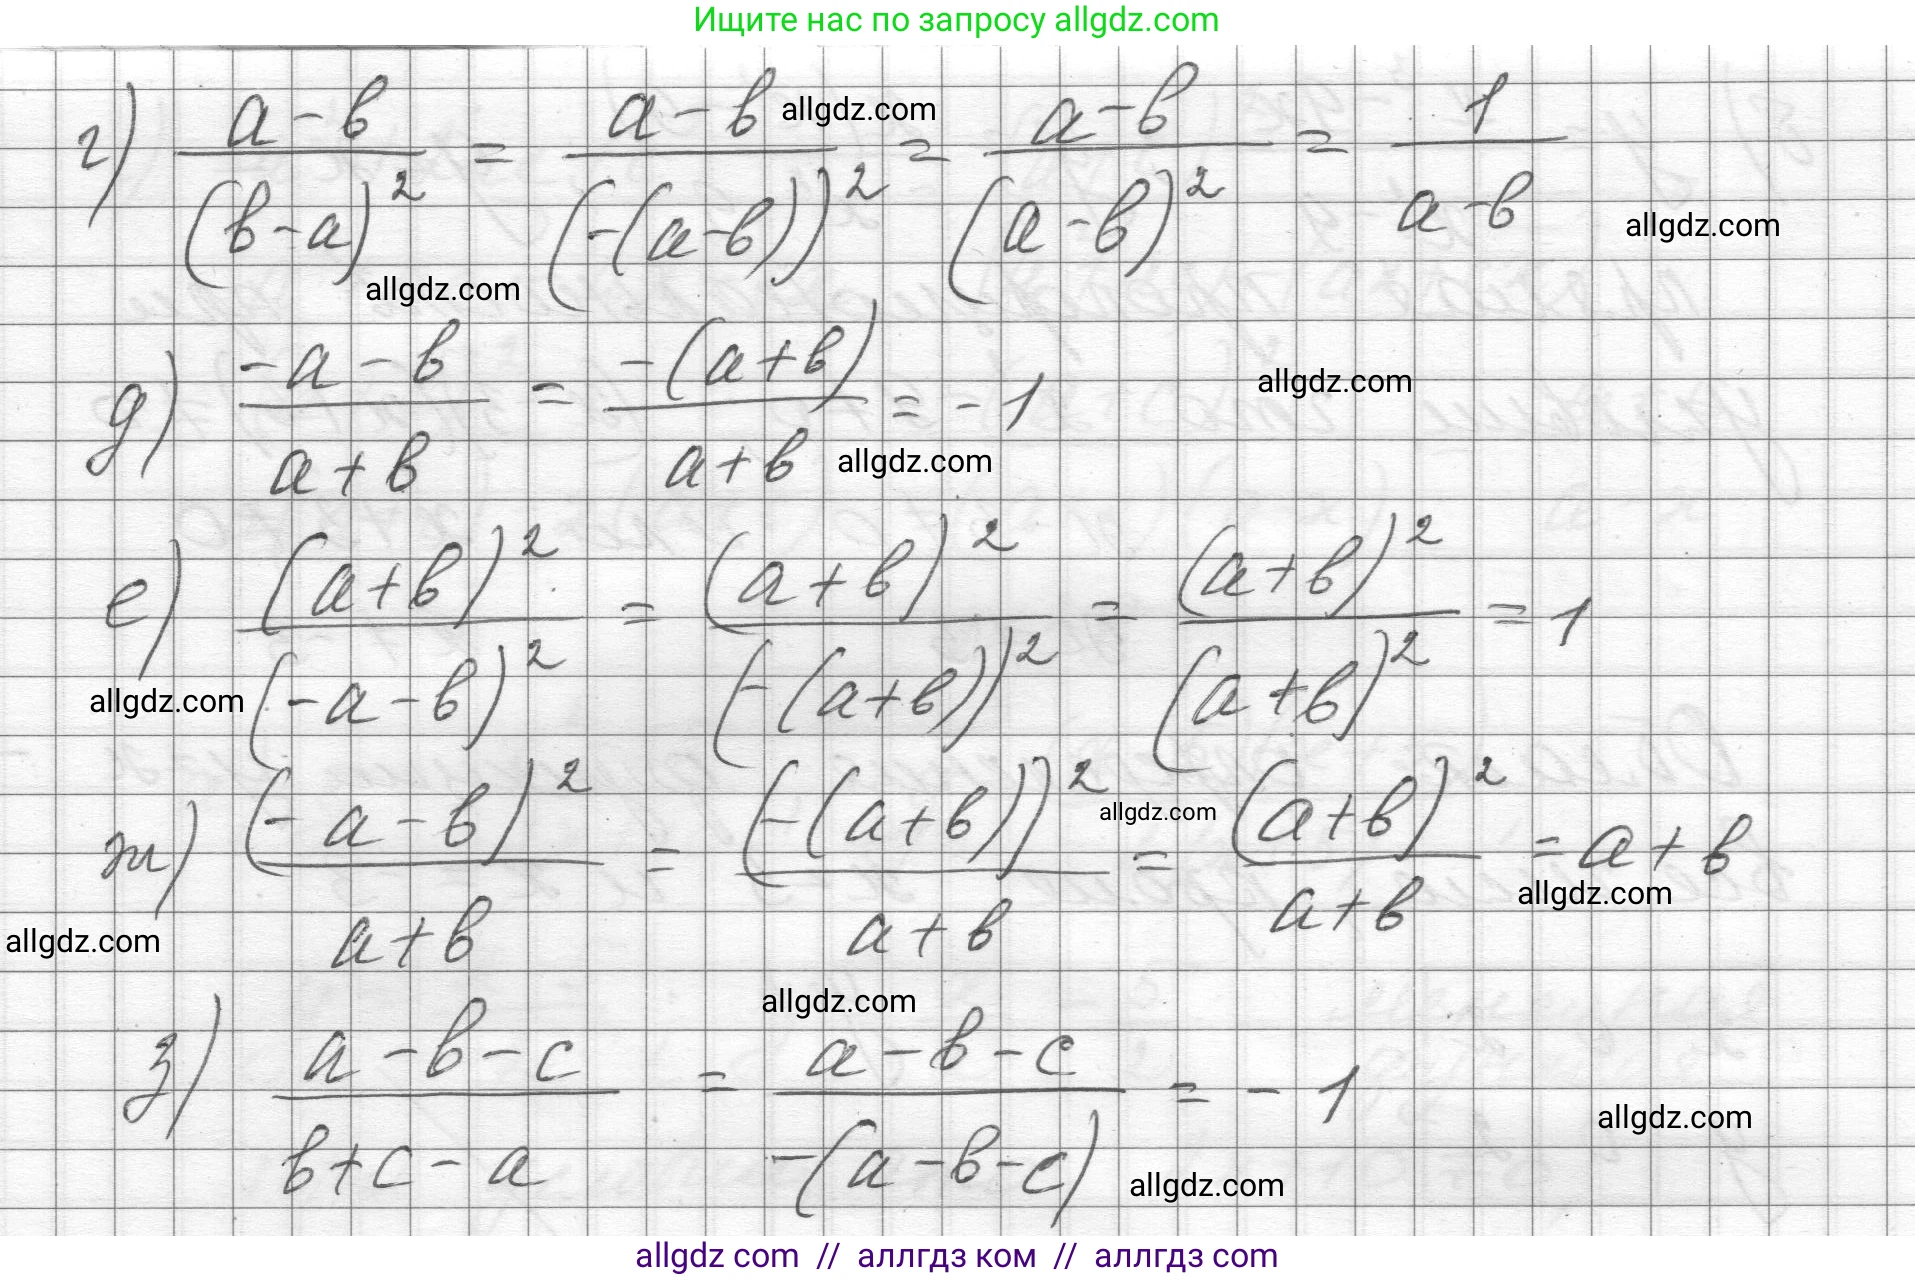 Ищите нас по запросу allgdz.com
г) (a-b)/(b-a)² = (a-b)/(-(a-b))² = (a-b)/(a-b)² = 1/(a-b)
allgdz.com
allgdz.com
allgdz.com
д) (-a-b)/(a+b) = (-(a+b))/(a+b) = -1
allgdz.com
allgdz.com
е) (a+b)²/(-a-b)² = (a+b)²/(-(a+b))² = (a+b)²/(a+b)² = 1
allgdz.com
ж) (-a-b)²/(a+b) = (-(a+b))²/(a+b) = (a+b)²/(a+b) = a+b
allgdz.com
allgdz.com
allgdz.com
allgdz.com
з) (a-b-c)/(b+c-a) = (a-b-c)/(-(a-b-c)) = -1
allgdz.com
allgdz.com
allgdz com // аллгдз ком // аллгдз com